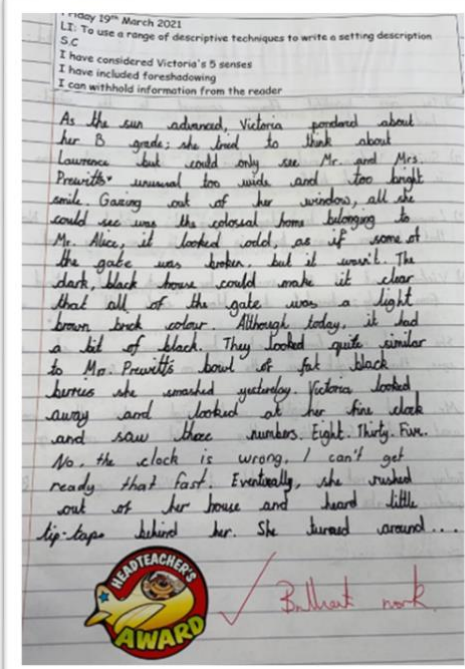 Friday 19th March 2021
LI: To use a range of descriptive techniques to write a setting description
S.C
I have considered Victoria's 5 senses
I have included foreshadowing
I can withhold information from the reader
As the sun advanced, Victoria pondered about
her B grade; she tried to think about
Lawrence but could only see Mr. and Mrs.
Prewitts' unusual too wide and too bright
smile. Gazing out of her window, all she
could see was the colossal home belonging to
Mr. Alice, it looked odd, as if some of
the gate was broken, but it wasn't. The
dark, black house could make it clear
that all of the gate was a light
brown brick colour. Although today, it had
a bit of black. They looked quite similar
to Mr. Prewitt's bowl of fat black
burries she smashed yesterday. Victoria looked
away and looked at her fine clock
and saw three numbers. Eight. Thirty. Five.
No, the clock is wrong, I can't get
ready that fast. Eventually, she rushed
out of her house and heard little
tip-taps behind her. She turned around....
HEADTEACHER'S
AWARD
Brilliant work.